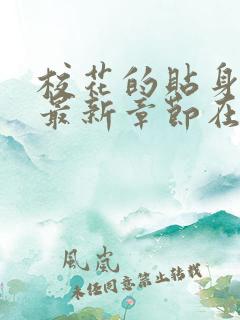 校花的贴身
最新章节在
风岚
未经同意禁止转载